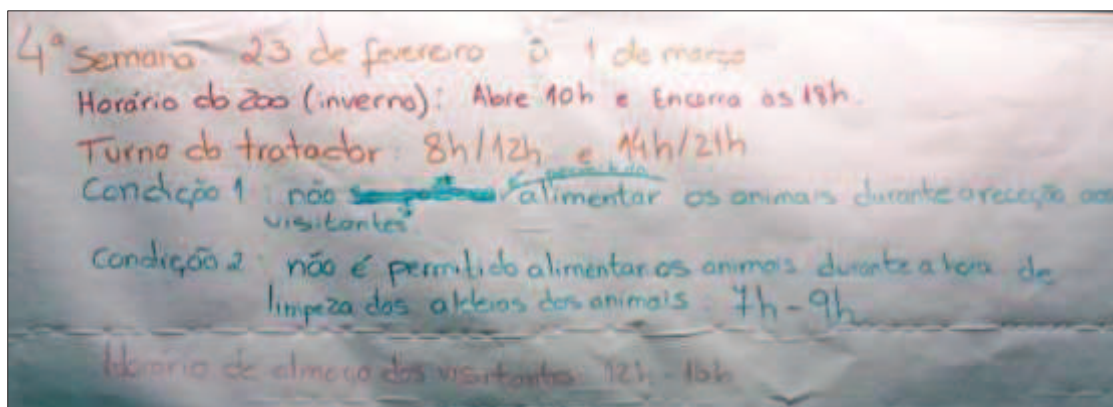 4ª Semana 23 de fevereiro à 1 de março
Horário do zoo (inverno): Abre 10h e Encerra as 18h.
Turno do tratador: 8h/12h e 14h/21h
Condição 1: não é permitido alimentar os animais durante a receção aos
visitantes.
Condição 2: não é permitido alimentar os animais durante a hora de
limpeza das aldeias dos animais: 7h-9h
Horário de almoço dos visitantes: 12h -